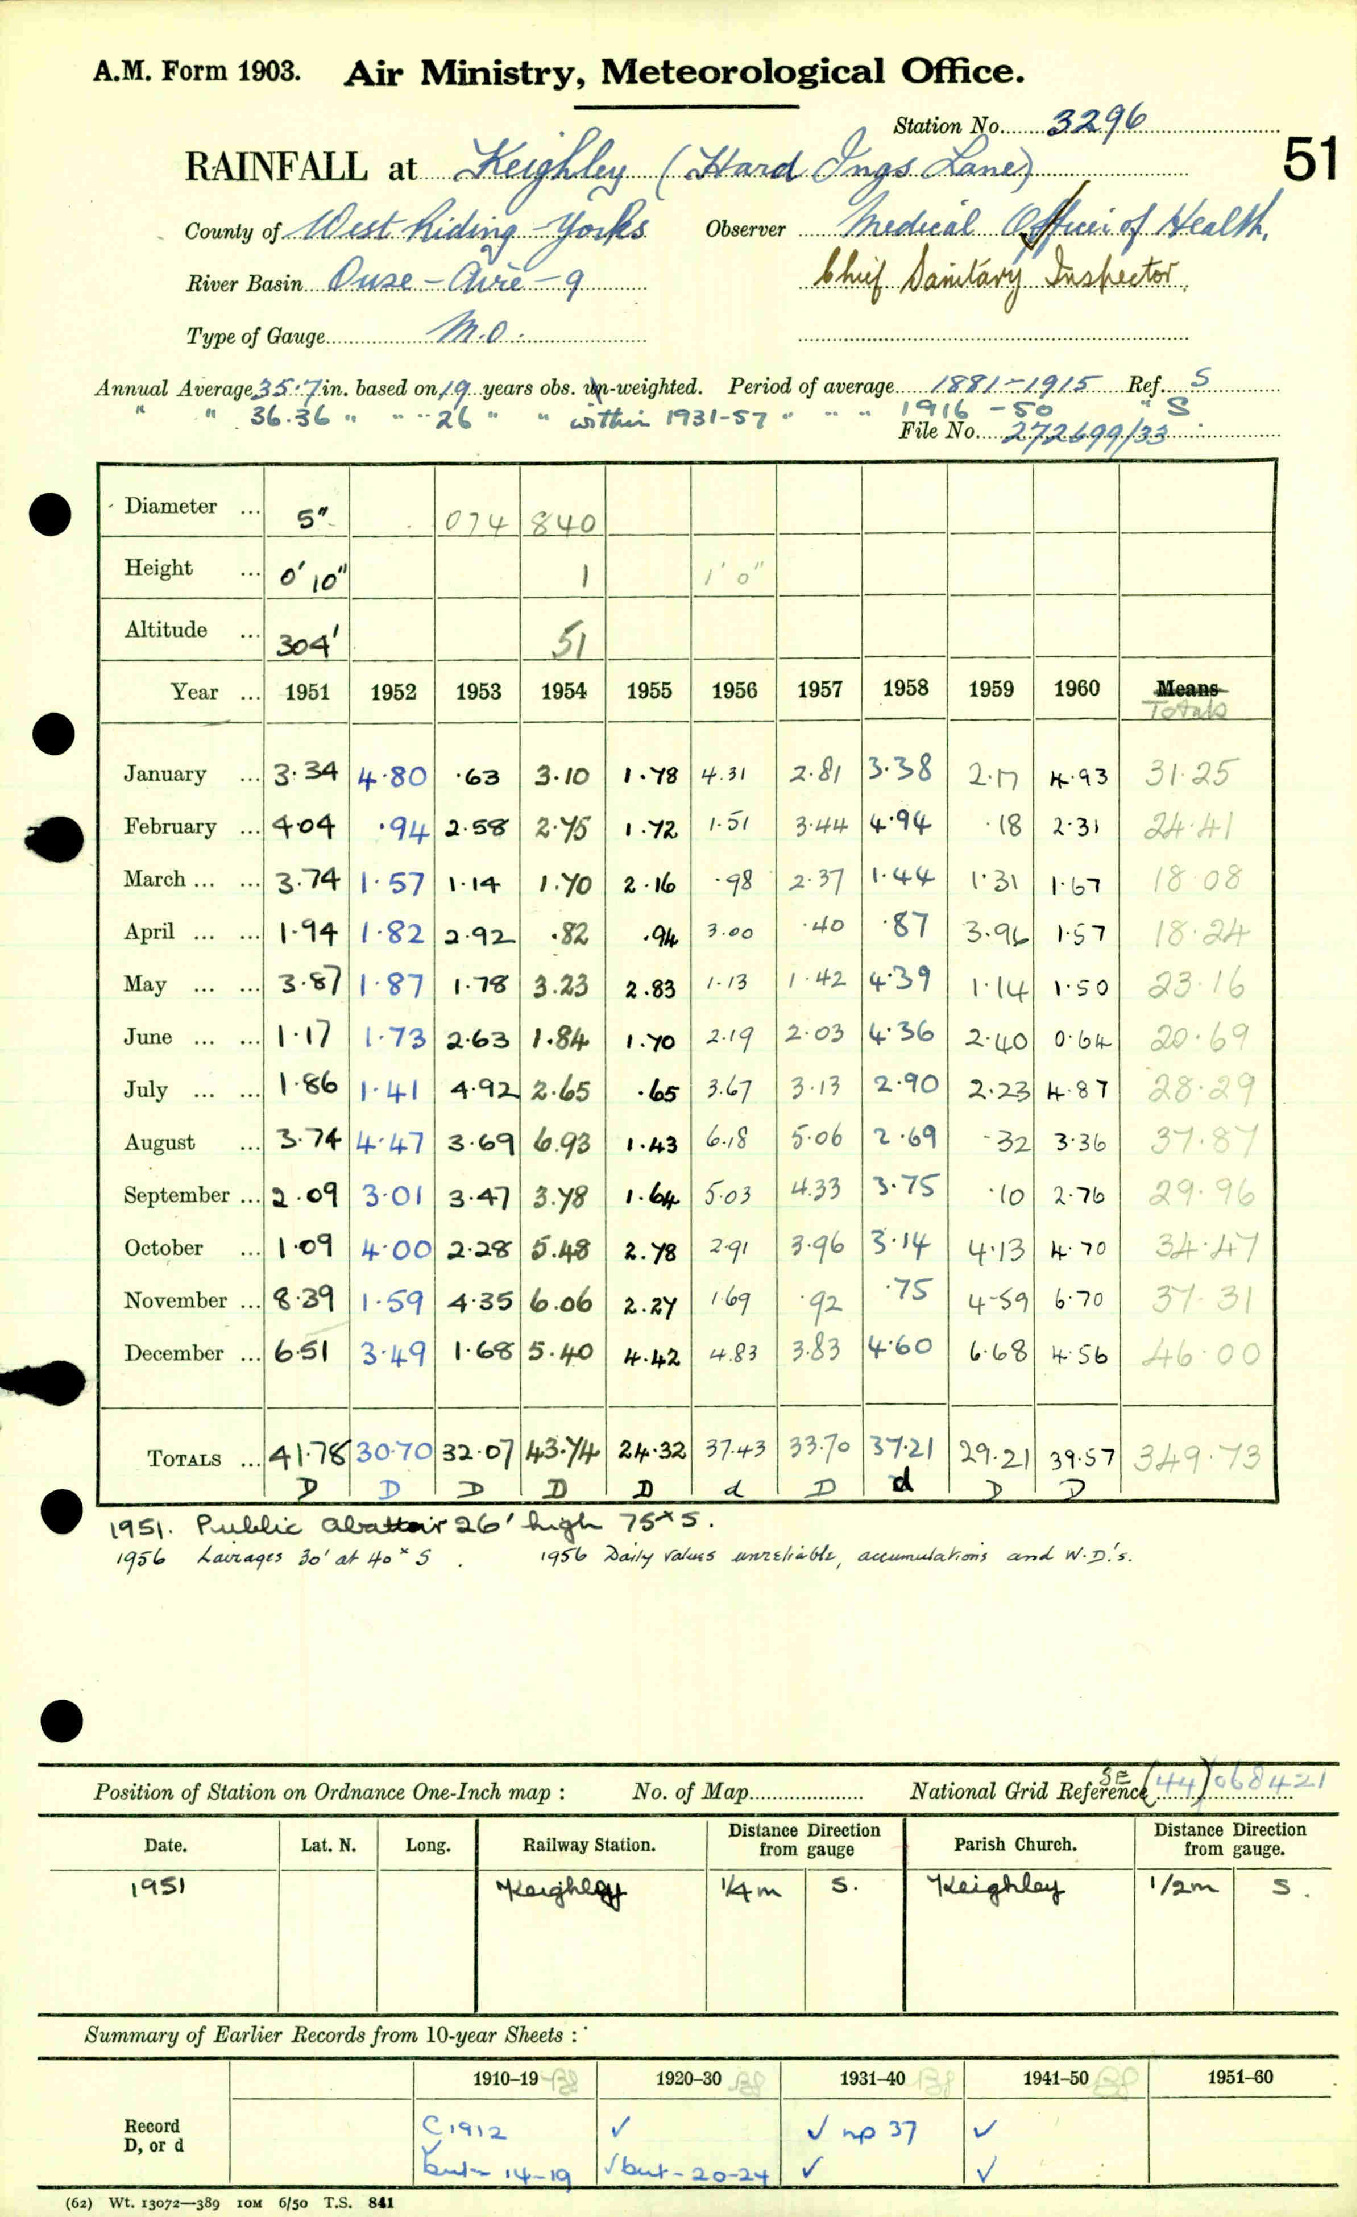 A.M. Form 1903. Air Ministry, Meteorological Office.
Station No. 3296
51
RAINFALL at Keighley (Hard Ings Lane)
County of West Riding - Yorks Observer Medical Officer of Health,
River Basin Ouse - Aire - 9 Chief Sanitary Inspector,
Type of Gauge M.O.
Annual Average 35.7 in. based on 19 years obs. un-weighted. Period of average 1881-1915 Ref. S
" " 36.36 " " " 26 " " within 1931-57 " " " 1916-50 " S
File No. 272699/33
Diameter ... 5" 074 840
Height ... 0' 10" 1 1' 0"
Altitude ... 304' 51
Year ... 1951 1952 1953 1954 1955 1956 1957 1958 1959 1960 Means
Totals
January ... 3.34 4.80 .63 3.10 1.78 4.31 2.81 3.38 2.17 4.93 31.25
February ... 4.04 .94 2.58 2.75 1.72 1.51 3.44 4.94 .18 2.31 24.41
March ... ... 3.74 1.57 1.14 1.70 2.16 .98 2.37 1.44 1.31 1.67 18.08
April ... ... 1.94 1.82 2.92 .82 .94 3.00 .40 .87 3.96 1.57 18.24
May ... ... 3.87 1.87 1.78 3.23 2.83 1.13 1.42 4.39 1.14 1.50 23.16
June ... ... 1.17 1.73 2.63 1.84 1.70 2.19 2.03 4.36 2.40 0.64 20.69
July ... ... 1.86 1.41 4.92 2.65 .65 3.67 3.13 2.90 2.23 4.87 28.29
August ... 3.74 4.47 3.69 6.93 1.43 6.18 5.06 2.69 .32 3.36 37.87
September ... 2.09 3.01 3.47 3.78 1.64 5.03 4.33 3.75 .10 2.76 29.96
October ... 1.09 4.00 2.28 5.48 2.78 2.91 3.96 3.14 4.13 4.70 34.47
November ... 8.39 1.59 4.35 6.06 2.27 1.69 .92 .75 4.59 6.70 37.31
December ... 6.51 3.49 1.68 5.40 4.42 4.83 3.83 4.60 6.68 4.56 46.00
TOTALS ... 41.78 30.70 32.07 43.74 24.32 37.43 33.70 37.21 29.21 39.57 349.73
D D D D D d D d D D
1951. Public abattoir 26' high 75x S.
1956 Lairages 30' at 40x S. 1956 Daily values unreliable, accumulations and W.D.'s.
Position of Station on Ordnance One-Inch map : No. of Map National Grid Reference SE (44) 068421
Date. Lat. N. Long. Railway Station. Distance from gauge Direction Parish Church. Distance from gauge. Direction
1951 Keighley 1/4 m S. Keighley 1/2 m S.
Summary of Earlier Records from 10-year Sheets :
1910–19 1920–30 1931–40 1941–50 1951–60
Record C 1912 ✓ ✓ np 37 ✓
D, or d ✓ but - 14-19 ✓ but - 20-24 ✓ ✓
(62) Wt. 13072—389 10M 6/50 T.S. 841